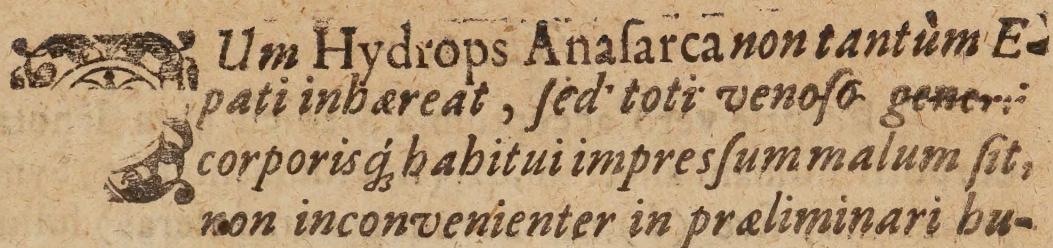 CUm Hydrops Anaſarca non tantùm E-
pati inhæreat, ſed toti venoſo generi
corporisq́; habitui impresſum malum ſit,
non inconvenienter in præliminari hu-